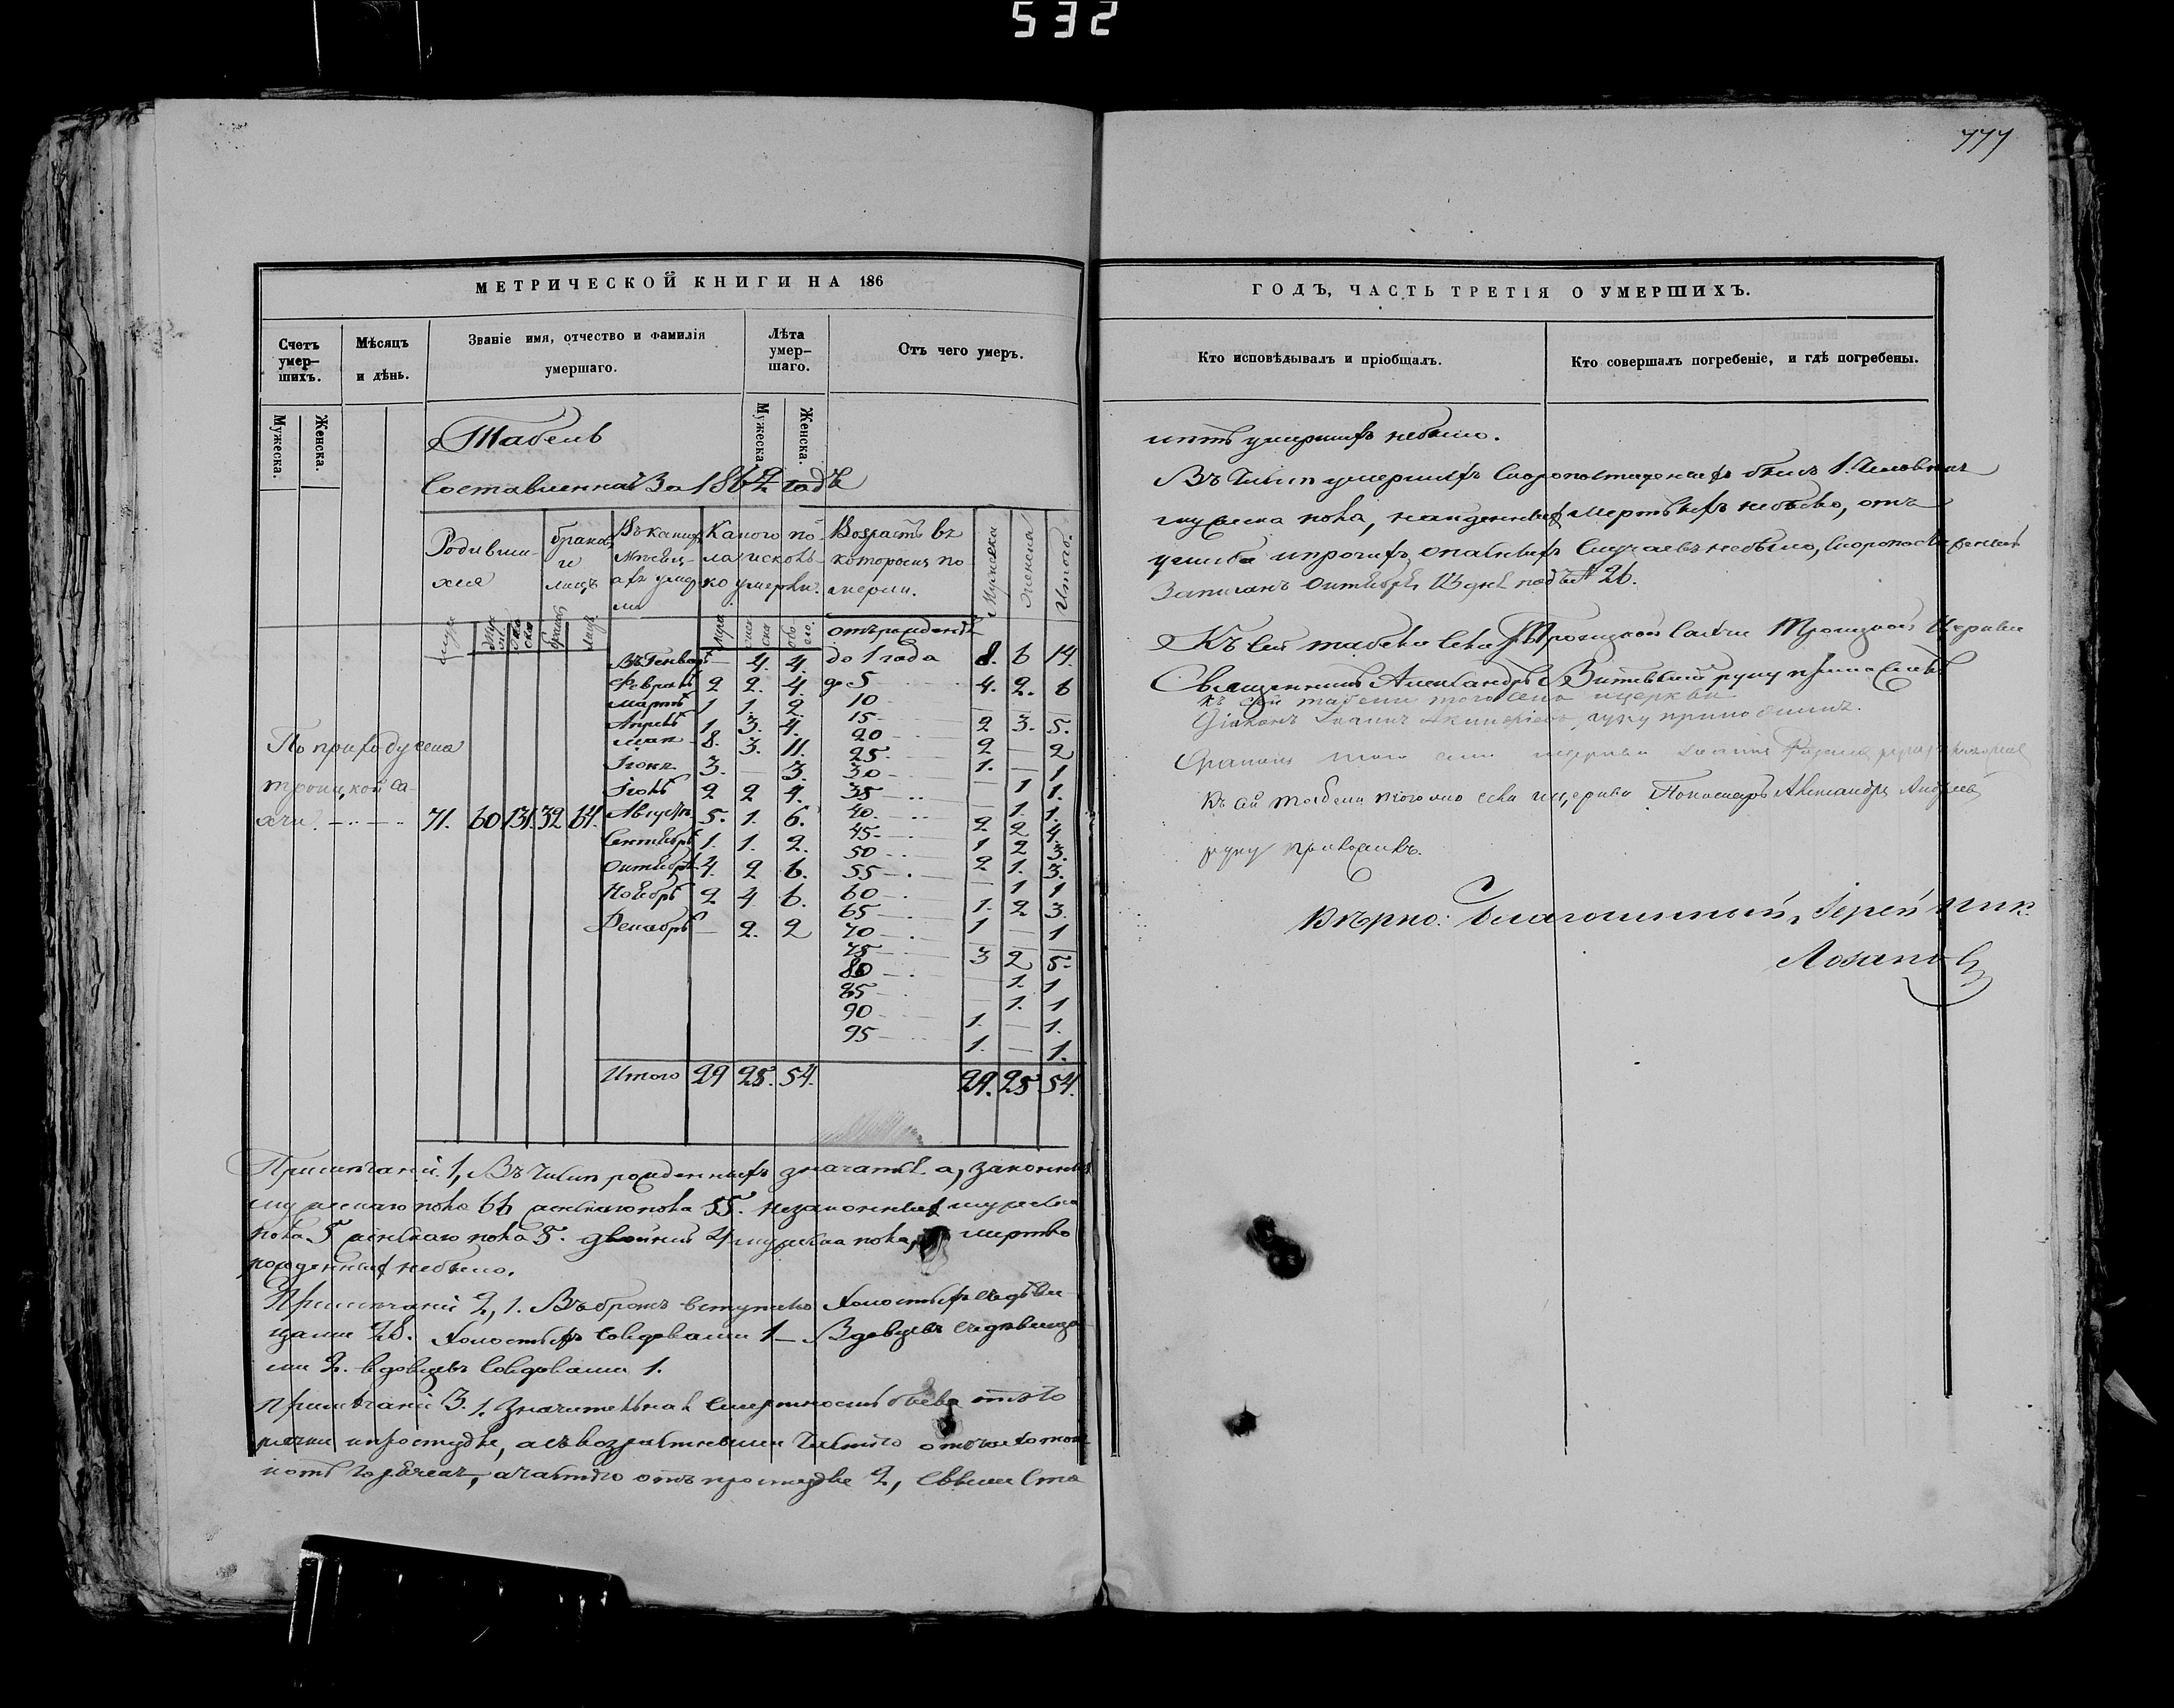 532
777
МЕТРИЧЕСКОЙ КНИГИ НА 186
Счетъ умер-шихъ.
Мѣсяцъ и дѣнь.
Званіе имя, отчество и фамилія умершаго.
Лѣта умер-шаго.
Отъ чего умеръ.
Мужеска.
Женска.
Мужеска.
Женска.
Табель
Составленная За 1862 годъ
Родивши-
хся
браковъ
и
лицъ
Въ какихъ
мѣсяц-
ахъ умер
ли
Какого по-
ла и сколь-
ко умерли.
Возрастъ въ
которомъ по
мерли.
Мужеска
Женска
Итого.
отъ рожденія
Въ Генварѣ — 4. 4. до 1 года 8. 6 14.
Февралѣ 2 2. 4. до 5 4. 2. 6
Мартѣ 1 1. 2. 10
Апрѣлѣ 1. 3. 4. 15 2 3. 5.
Маѣ 8. 3. 11. 20 2 — 2
Іюнѣ 3. — 3. 25 1. — 1
Іюлѣ 2 2 4. 30 — 1 1.
По приходу села
Троицкой Са-
кчи. 71. 60. 131. 32 64.
Августѣ 5. 1. 6. 35 — 1. 1.
Сентябрѣ 1. 1. 2. 40 2 2 4.
Октябрѣ 4. 2 6. 45 1 2 3.
Ноябрѣ 2 4 6. 50 2 1. 3.
Декабрѣ — 2. 2 55 — 1 1
60 1. 2 3.
65 1 — 1
70
75 3 2 5.
80 — 1. 1
85 — 1. 1
90 1. — 1.
95 1. — 1.
Итого 29 25. 54. 29. 25 54.
Примѣчаніе 1, Въ числѣ рожденныхъ значатся. а, законныхъ
мужескаго пола 66 женскаго пола 55. незаконныхъ мужеска
пола 5 женскаго пола 5. двойни 4 мужеска пола, мертво
рожденныхъ небыло.
Примѣчаніе 2, 1. Въ бракъ вступило Холостыхъ съ дѣви
цами 28. Холостыхъ совдовами 1 — Вдовцевъ съ дѣвица
ми 2. вдовцевъ совдовами 1.
Примѣчаніе 3. 1. Значительная смертность была отъ го
рячки и простуды, а съ возрастными
отъ простуды 2, свыше Ста
ГОДЪ, ЧАСТЬ ТРЕТІЯ О УМЕРШИХЪ.
Кто исповѣдывалъ и пріобщалъ.
Кто совершалъ погребеніе, и гдѣ погребены.
лѣтъ умершихъ небыло.
Въ числѣ умершихъ Скоропостижныхъ былъ 1. Человѣкъ
мужеска пола, найденныхъ мертвыхъ небыло, отъ
ушиба и прочихъ опасныхъ случаевъ небыло, Скоропостижный
Записанъ Октября 13 дня подъ № 26.
Къ сей табели села Троицкой Сакчи Троицкой Церкви
Священникъ Александръ руку приложилъ
Къ сей табели тогоже села и церкви
Діаконъ Іоаннъ руку приложилъ.
того села церкви
Къ сей табели тогоже села и церкви Пономарь Александръ Андреевъ
руку приложилъ.
Вѣрно: Благочинный, Іерей Ник.